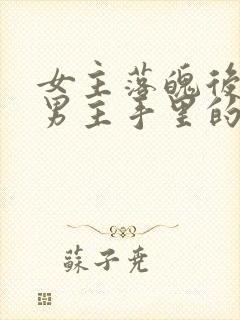 女主落魄後
男主手里的
蘇子堯